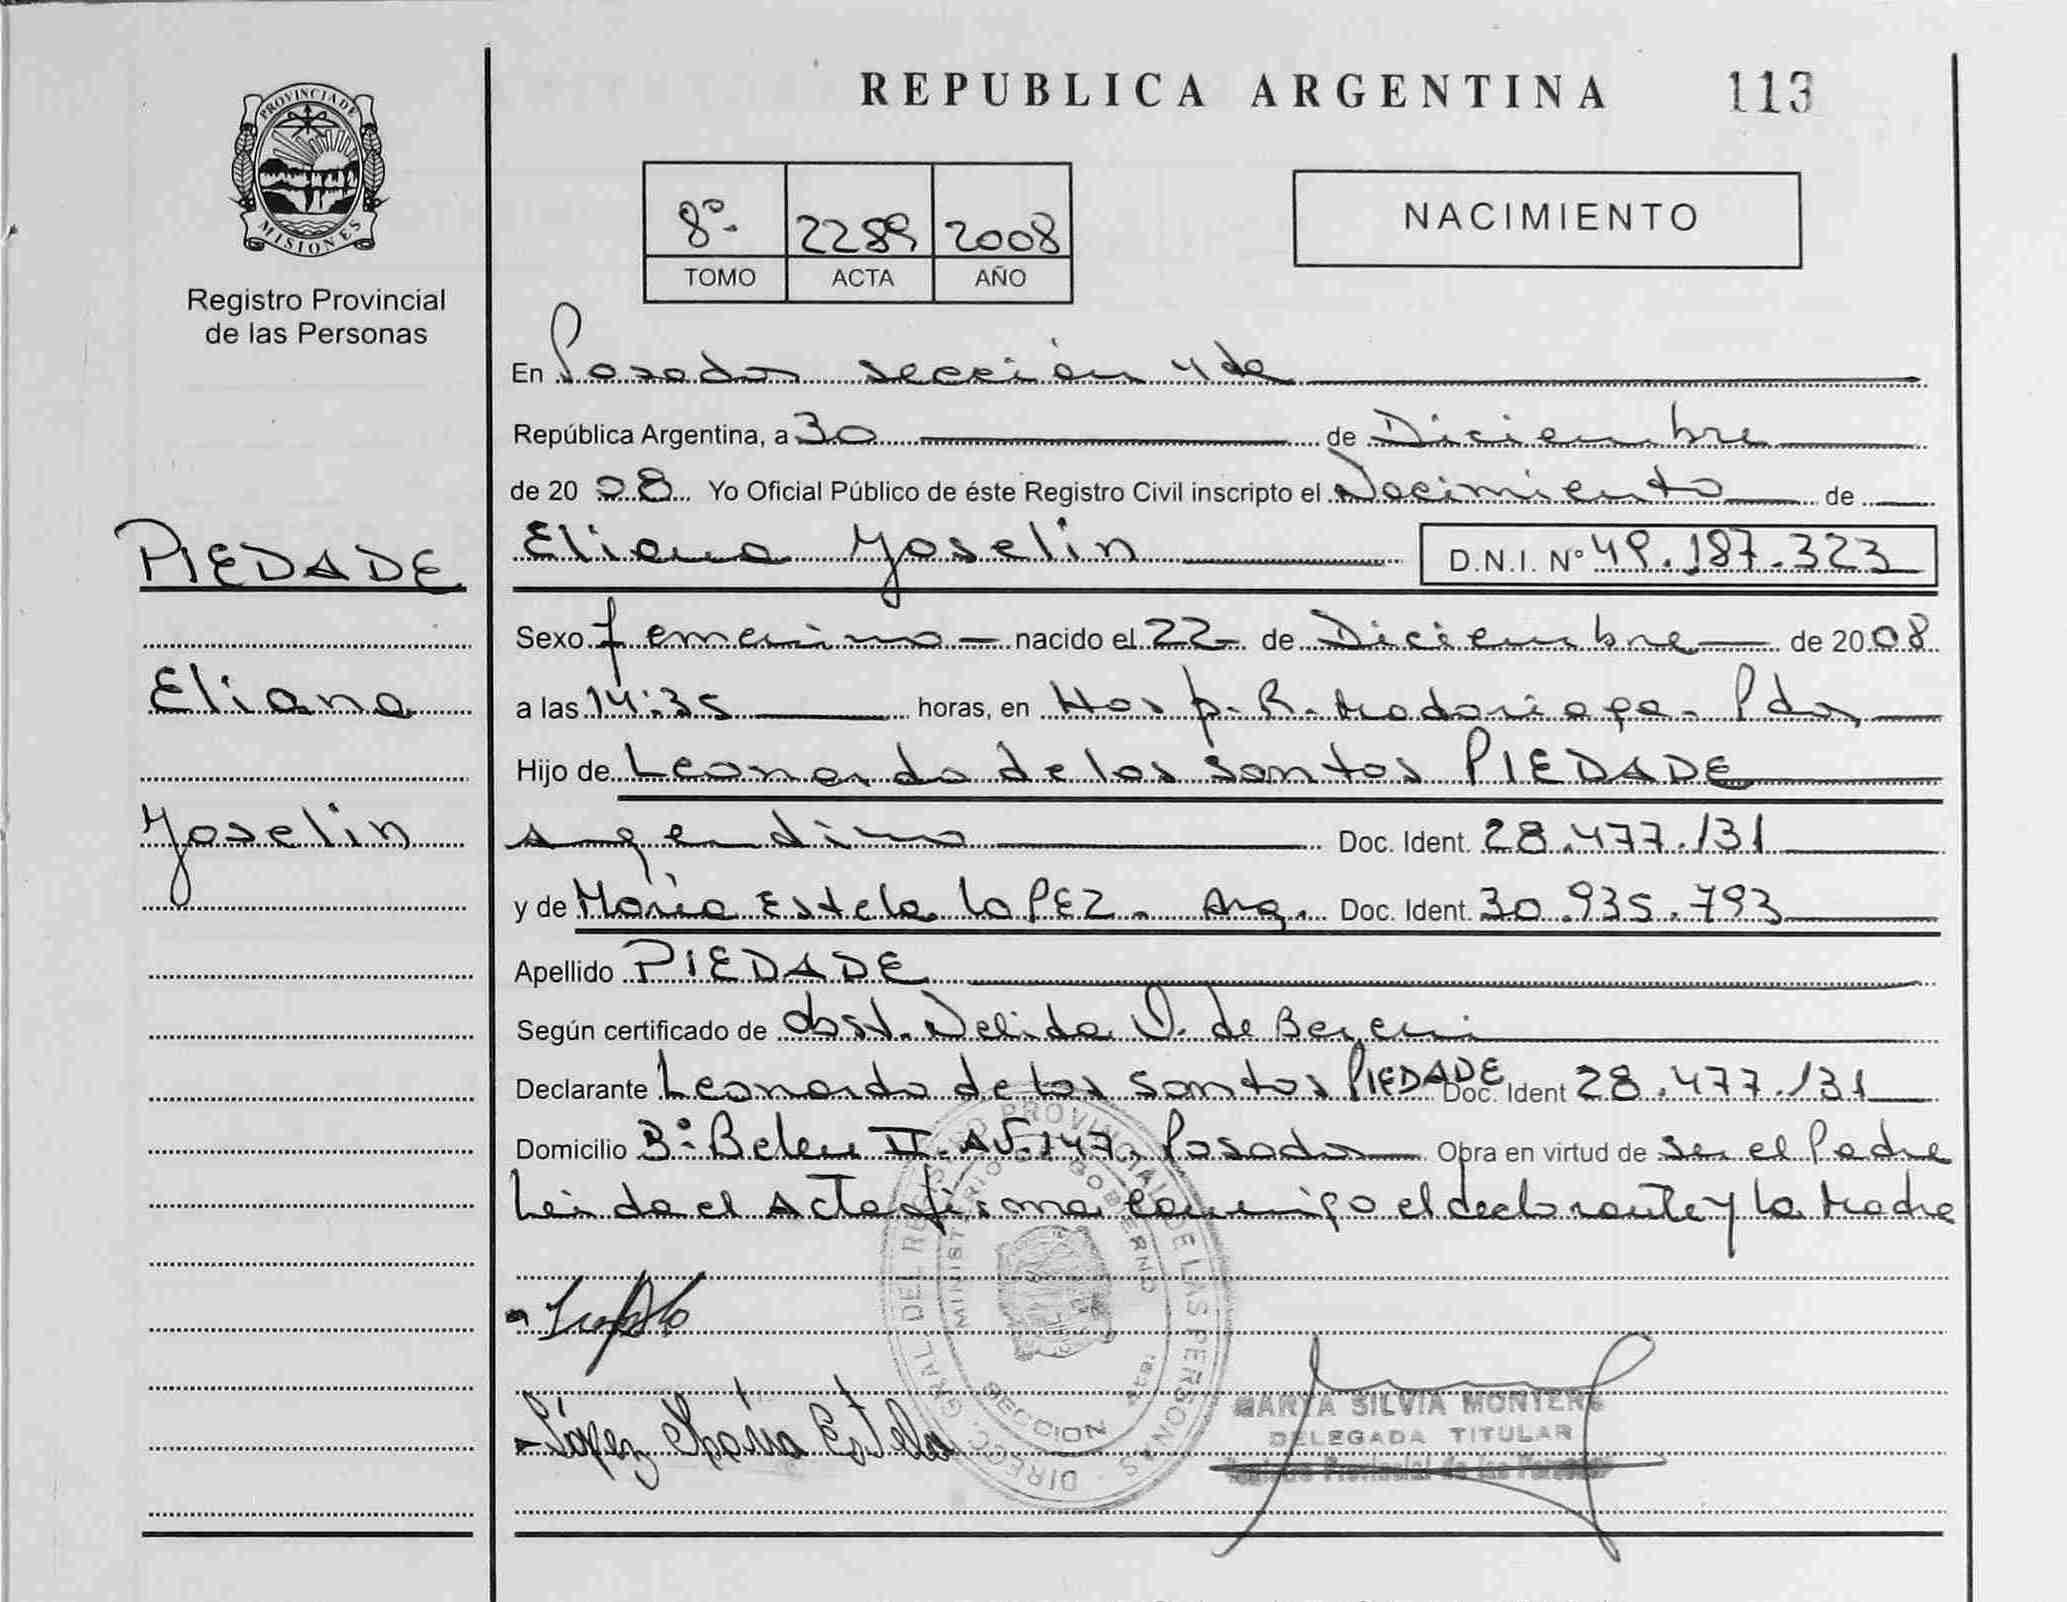 REPUBLICA ARGENTINA 113
PROVINCIA DE
MISIONES
Registro Provincial
de las Personas
8º- 2289 2008
TOMO ACTA AÑO
NACIMIENTO
En Posadas sección 4da
República Argentina, a 30 de Diciembre
de 20 08 Yo Oficial Público de éste Registro Civil inscripto el Nacimiento de
PIEDADE
Eliana Yoselin D.N.I. Nº 49.187.323
Sexo femenino nacido el 22 de Diciembre de 2008
Eliana
a las 14:35 horas, en Hosp. R. Madariaga. Pdas
Hijo de Leonardo de los Santos PIEDADE
Yoselin
Argentino Doc. Ident. 28.477.131
y de María Estela LOPEZ. Arg. Doc. Ident. 30.935.793
Apellido PIEDADE
Según certificado de obst. Nelida de
Declarante Leonardo de los Santos PIEDADE Doc. Ident 28.477.131
Domicilio Bº Belen II. AV. 147. Posadas Obra en virtud de ser el Padre
Leida el Acta firma conmigo el declarante y la Madre
DIRECC. GRAL DEL REGISTRO PROVINCIAL DE LAS PERSONAS
MINISTERIO GOBIERNO
SECCION
López María Estela
MARTA SILVIA MONTERO
DELEGADA TITULAR
Registro Provincial de las Personas